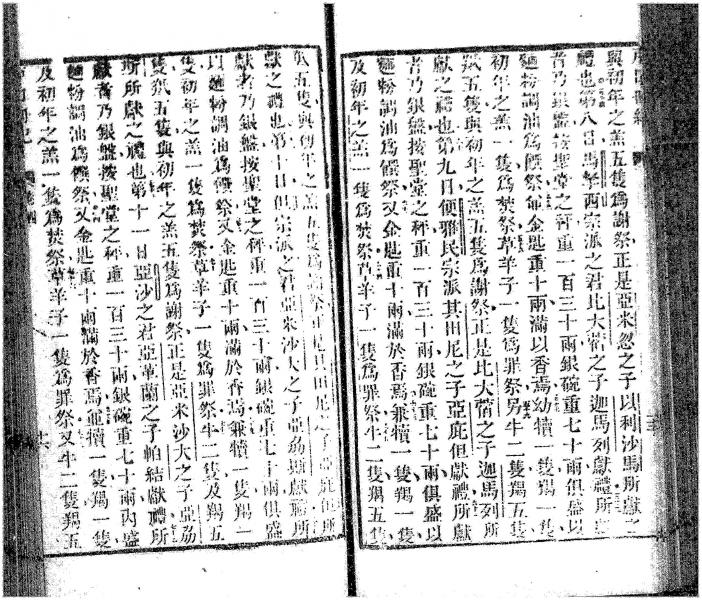 與初年之羔五隻爲謝祭正是亞米忽之子以利沙馬所獻之
禮也第八日馬拿西宗派之君比大蓿之子迦馬列獻禮所
者乃銀盤按聖堂之秤重一百三十兩銀碗重七十兩俱盛以
麵粉調油爲饌祭金匙重十兩滿以香焉幼犢一隻羯一隻
初年之羔一隻爲焚祭草羊子一隻爲罪祭另牛二隻羯五隻
羝五隻與初年之羔五隻爲謝祭正是比大蓿之子迦馬列所
獻之禮也第九日便雅民宗派其田尼之子亞庇但獻禮所獻
者乃銀盤按聖堂之秤重一百三十兩銀碗重七十兩俱盛以
麵粉調油爲饌祭又金匙重十兩滿於香焉兼犢一隻羯一隻
及初年之羔一隻爲焚祭草羊子一隻爲罪祭牛二隻羯五隻
羝五隻與初年之羔五隻爲謝祭正是其田尼之子亞庇但所
獻之禮也第十日但宗派之君亞米沙大之子亞獻禮所
獻者乃銀盤按聖堂之秤重一百三十兩銀碗重七十兩俱盛
以麵粉調油爲饌祭又金匙重十兩滿於香焉兼犢一隻羯一
隻初年之羔一隻爲焚祭草羊子一隻爲罪祭牛二隻及羯五
隻羝五隻與初年之羔五隻爲謝祭正是亞米沙大之子亞
所獻之禮也第十一日亞沙之君亞革蘭之子帕結獻禮所
獻者乃銀盤按聖堂之秤重一百三十兩銀碗重七十兩內盛
麵粉調油爲饌祭又金匙重十兩滿於香焉並犢一隻羯一隻
及初年之羔一隻爲焚祭草羊子一隻爲罪祭又牛二隻羯五